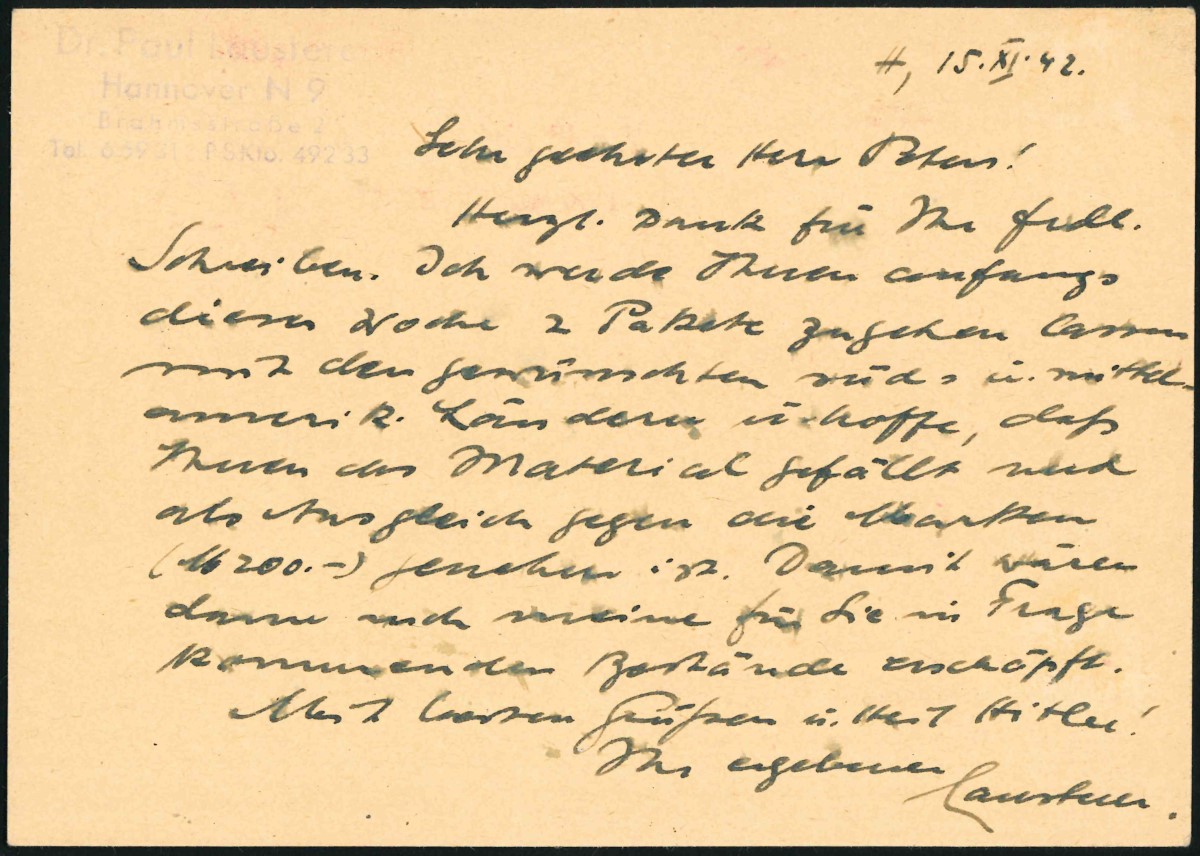 Dr. Paul
Hannover N 9
Tel. PSKto. 49233
H, 15.XI.42.
Sehr geehrter Herr Peters!
Herzl. Dank für Ihr frdl.
Schreiben. Ich werde Ihnen anfangs
dieser Woche 2 Pakete zugehen lassen
mit den gewünschten süd- u. mittel-
amerik. Ländern u. hoffe, daß
Ihnen das Material gefällt und
als Ausgleich gegen die Marken
(M 200.-) genehm ist. Damit wären
dann auch meine für Sie in Frage
kommenden Bestände erschöpft.
Mit besten Grüßen u. Heil Hitler!
Ihr ergebener